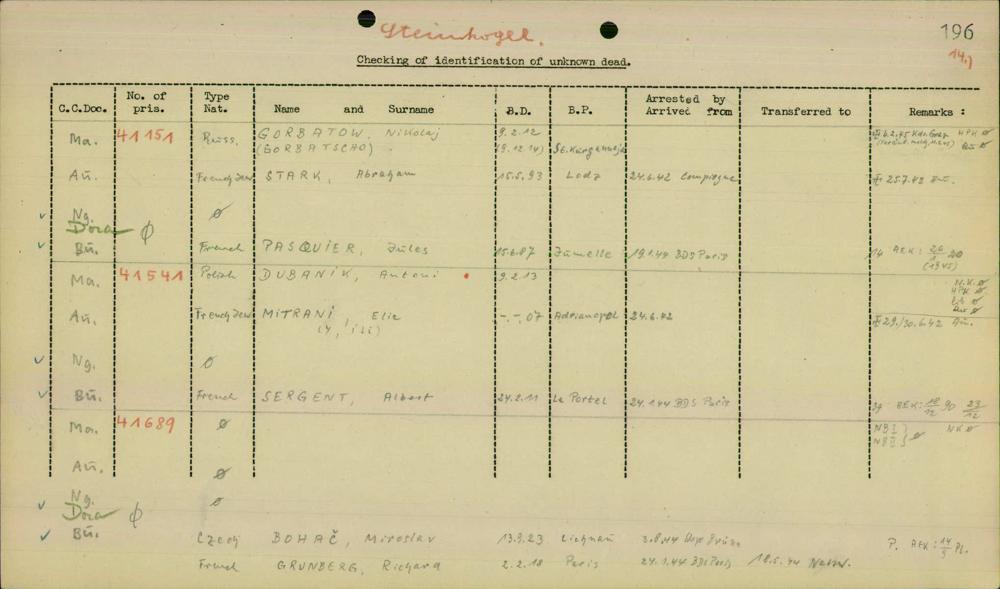 Steinkogel. 196
14.)
Checking of identification of unknown dead.
C.C.Doc. No. of pris. Type Nat. Name and Surname B.D. B.P. Arrested by Arrived from Transferred to Remarks :
Ma. 41151 Russ. GORBATOW, Nikolaj 9.2.12
(GORBATSCHO) (9.12.14)
Au. French Jew STARK, Abraham 15.5.93 Lodz 24.6.42 Compiegne 25.7.42 Au.
Ng. ø
Dora ϕ
Bu. French PASQUIER, Jules 15.6.87 Jumelle 19.1.44 BDS Paris 14 AEK: 26/1 20
(1945)
Ma. 41541 Polish DUBANIK, Antoni 9.2.13 N.K ø
HPK ø
Au. French Jew MITRANI, Elie -.-.07 Adrianopel 24.6.42 29./30.6.42 Au.
Ng. ø
Bu. French SERGENT, Albert 24.2.11 Le Portel 24.1.44 BDS Paris
Ma. 41689 ø NB I } NK ø
NB II } ø
Au. ø
Ng. ø
Dora ϕ
Bu. Czech BOHAČ, Miroslav 13.3.23 P. AEK: 14/3 Pl.
French GRUNBERG, Richard 2.2.18 Paris 24.1.44 BDS Paris 18.5.44 Natzw.